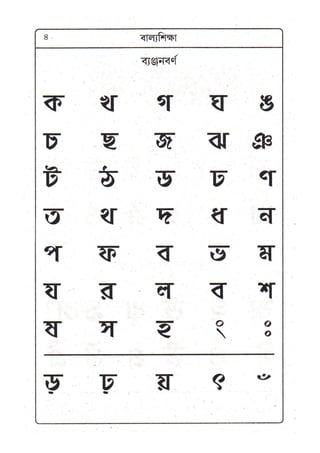 ৪ বাল্যশিক্ষা
ব্যঞ্জনবর্ণ
ক খ গ ঘ ঙ
চ ছ জ ঝ ঞ
ট ঠ ড ঢ ণ
ত থ দ ধ ন
প ফ ব ভ ম
য র ল ব শ
ষ স হ ং ঃ
ড় ঢ় য় ৎ ঁ